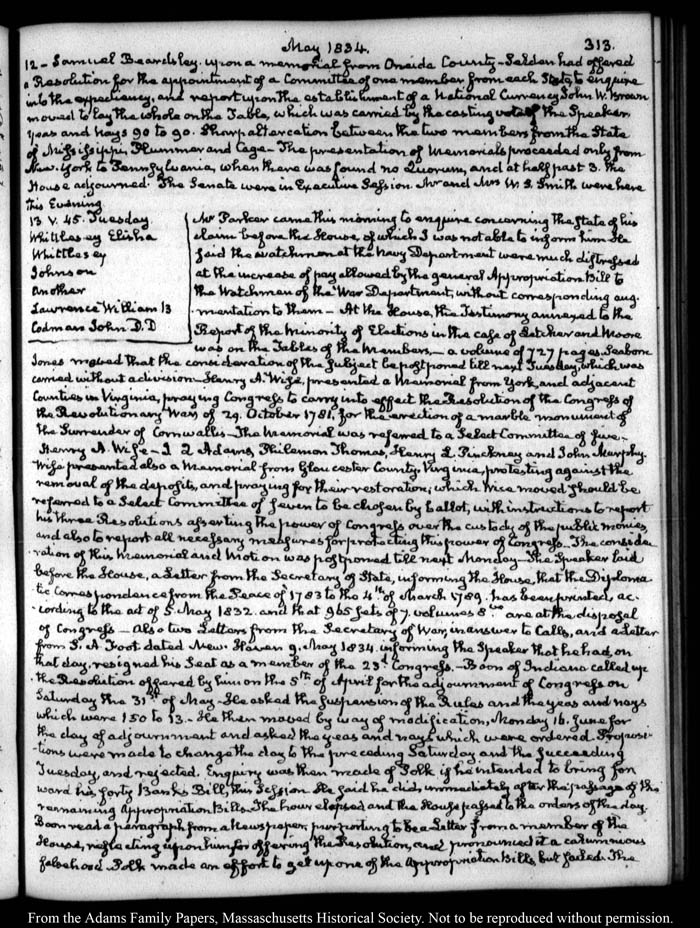 May 1834.
313.
12 – Samuel Beardsley. upon a memorial from Oneida County – Selden had offered
a Resolution for the appointment of a Committee of one member from each State, to enquire
into the expediency, and report upon the establishment of a National Currency John W. Brown
moved to lay the whole on the Table, which was carried by the casting vote of the Speaker
yeas and nays 90 to 90. Sharp altercation between the two members from the State
of Mississippi, Plummer and Cage – The presentation of Memorials proceeded only from
New-York to Pennsylvania, when there was found no Quorum, and at half past 3. the
House adjourned. The Senate were in Executive Session. Mr and Mrs W. S. Smith were here
this Evening.
13 V. 45. Tuesday.
Whittlesey Elisha
Whittlesey
Johnson
another
Lawrence William B
Codman John D.D
Mr Parker came this morning to enquire concerning the State of his
claim before the House, of which I was not able to inform him He
said the watchmen at the Navy Department were much distressed
at the increase of pay allowed by the general Appropriation Bill to
the Watchmen of the War Department, without corresponding aug-
mentation to them – At the House, the Testimony annexed to the
Report of the Minority of Elections in the case of Letcher and Moore
was on the Tables of the Members, – a volume of 727 pages. Seaborn
Jones moved that the consideration of the subject be postponed till next Tuesday, which was
carried without a division – Henry A. Wise, presented a Memorial from York, and adjacent
Counties in Virginia, praying Congress to carry into effect the Resolution of the Congress of
the Revolutionary War, of 29. October 1781, for the erection of a marble monument of
the Surrender of Cornwallis – The Memorial was referred to a Select Committee of five –
Henry A. Wise – J. Q. Adams, Philemon Thomas, Henry L. Pinckney and John Murphy.
Wise presented also a Memorial from Gloucester County, Virginia, protesting against the
removal of the deposits, and praying for their restoration; which Wise moved should be
referred to a Select Committee of seven to be chosen by ballot, with instructions to report
his three Resolutions asserting the power of Congress over the custody of the public monies,
and also to report all necessary measures for protecting this power of Congress. The conside-
-ration of this Memorial and Motion was postponed till next Monday – The Speaker laid
before the House, a Letter from the Secretary of State, informing the House, that the Diploma-
tic Correspondence from the Peace of 1783 to the 4th of March 1789. has been printed, ac-
-cording to the act of 5. May 1832. and that 965 sets of 7. volumes 8vo are at the disposal
of Congress – Also two Letters from the Secretary of War, in answer to Calls, and a Letter
from S. A. Foot dated New Haven 9. May 1834. informing the Speaker that he had, on
that day, resigned his Seat as a member of the 23d Congress. – Boon of Indiana called up
the Resolution offered by him on the 5th of April for the adjournment of Congress on
Saturday the 31st of May – He asked the Suspension of the Rules and the yeas and nays
which were 150 to 13. – He then moved by way of modification, Monday 16. June for
the day of adjournment and asked the yeas and nays which were ordered. Proposi-
-tions were made to change the day to the preceding Saturday and the succeeding
Tuesday, and rejected. Enquiry was then made of Polk if he intended to bring for
ward his forty Banks Bill, this Session. He said he did, immediately after the passage of the
remaining Appropriation Bills. The hour elapsed and the House passed to the orders of the day.
Boon read a paragraph from a Newspaper, purporting to be a Letter from a member of the
House, reflecting upon him for offering the Resolution, and pronounced it a calumnious
falsehood Polk made an effort to get up one of the Appropriation Bills, but failed. The
From the Adams Family Papers, Massachusetts Historical Society. Not to be reproduced without permission.